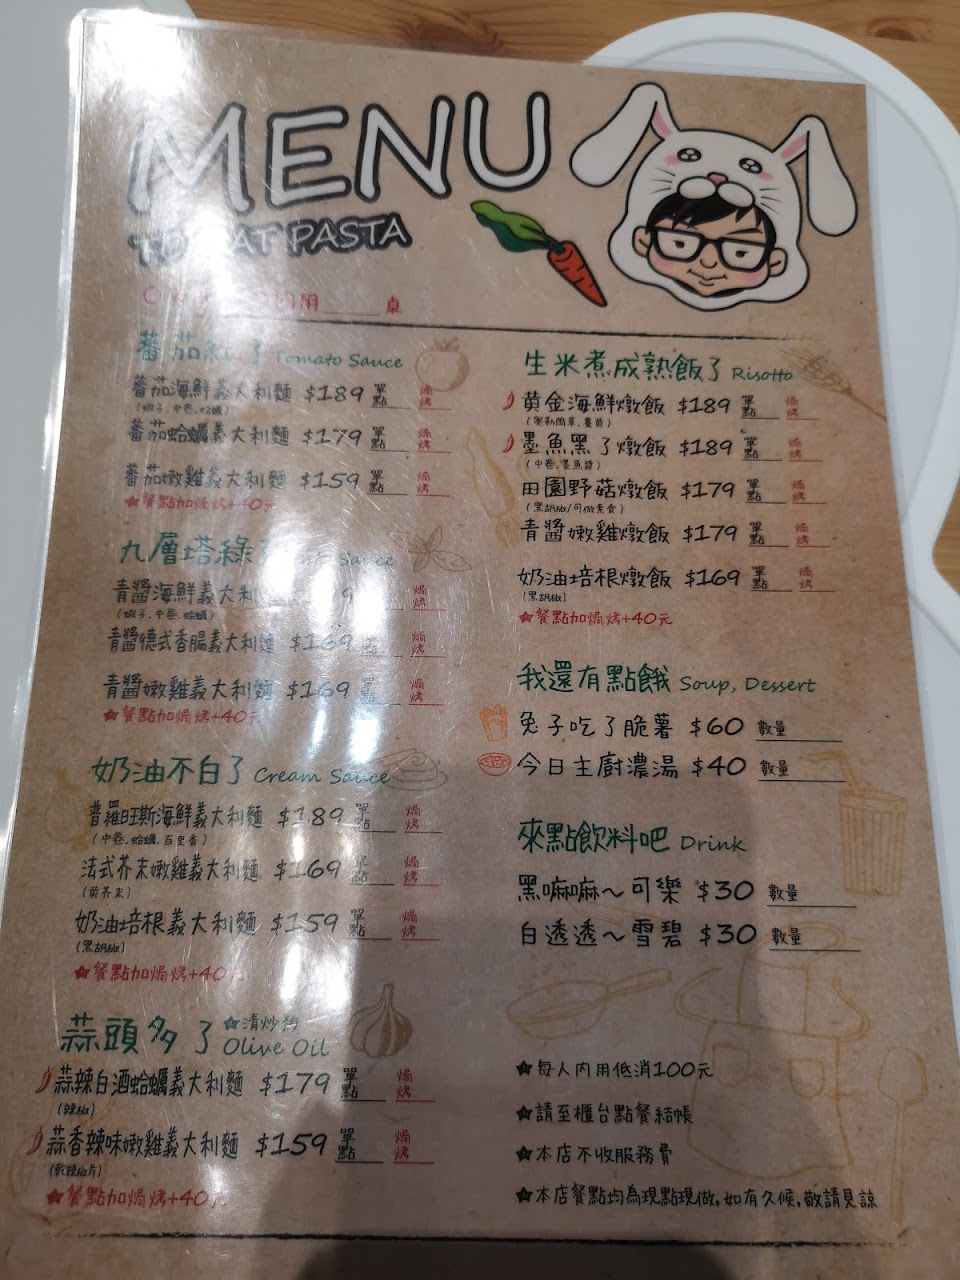 MENU
AT PASTA
內用 桌
蕃茄紅了 Tomato Sauce
蕃茄海鮮義大利麵 $189 單點 焗烤
(蝦子.中卷.蛤蠣)
蕃茄蛤蠣義大利麵 $179 單點 焗烤
蕃茄嫩雞義大利麵 $159 單點 焗烤
★餐點加焗烤+40元
九層塔綠了 Sauce
青醬海鮮義大利 焗烤
(蝦子.中卷.蛤蠣)
青醬德式香腸義大利麵 $169 單點 焗烤
青醬嫩雞義大利麵 $169 單點 焗烤
★餐點加焗烤+40元
奶油不白了 Cream Sauce
普羅旺斯海鮮義大利麵 $189 單點 焗烤
(中卷.蛤蠣.百里香)
法式芥末嫩雞義大利麵 $169 單點 焗烤
(黃芥末)
奶油培根義大利麵 $159 單點 焗烤
(黑胡椒)
★餐點加焗烤+40元
蒜頭多了 ★清炒類
Olive Oil
蒜辣白酒蛤蠣義大利麵 $179 單點 焗烤
(辣椒)
蒜香辣味嫩雞義大利麵 $159 單點 焗烤
(乾辣椒片)
★餐點加焗烤+40元
生米煮成熟飯了 Risotto
黃金海鮮燉飯 $189 單點 焗烤
墨魚黑了燉飯 $189 單點 焗烤
(中卷.墨魚醬)
田園野菇燉飯 $179 單點 焗烤
(黑胡椒/可做素食)
青醬嫩雞燉飯 $179 單點 焗烤
奶油培根燉飯 $169 單點 焗烤
(黑胡椒)
★餐點加焗烤+40元
我還有點餓 Soup, Dessert
兔子吃了脆薯 $60 數量
今日主廚濃湯 $40 數量
來點飲料吧 Drink
黑嘛嘛~可樂 $30 數量
白透透~雪碧 $30 數量
★每人內用低消100元
★請至櫃台點餐結帳
★本店不收服務費
★本店餐點均為現點現做,如有久候,敬請見諒